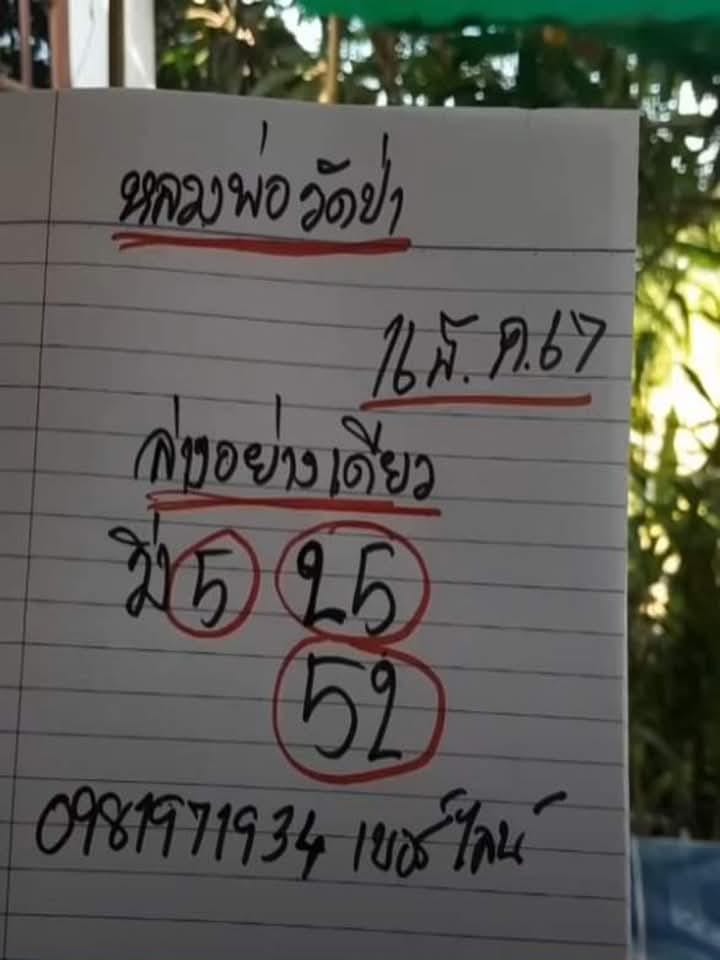 หลวงพ่อวัดป่า
16 ส.ค.67
ล่างอย่างเดียว
วิ่ง 5 25
52
0981971934 เบอร์ไลน์